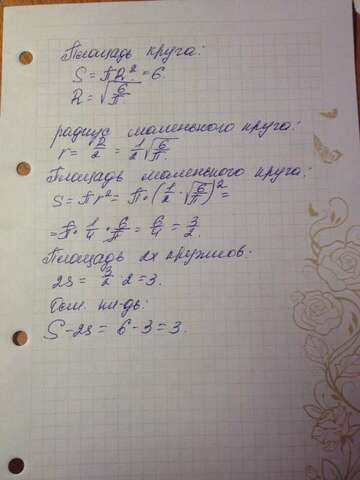 Площадь круга:
S = πR² = 6.
R = √(6/π)
радиус маленького круга:
r = R/2 = 1/2 √(6/π)
Площадь маленького круга:
s = πr² = π · (1/2 · √(6/π))² =
= π · 1/4 · 6/π = 6/4 = 3/2.
Площадь 2х кружков:
2s = 3/2 · 2 = 3.
Ост. пл-дь:
S - 2s = 6 - 3 = 3.